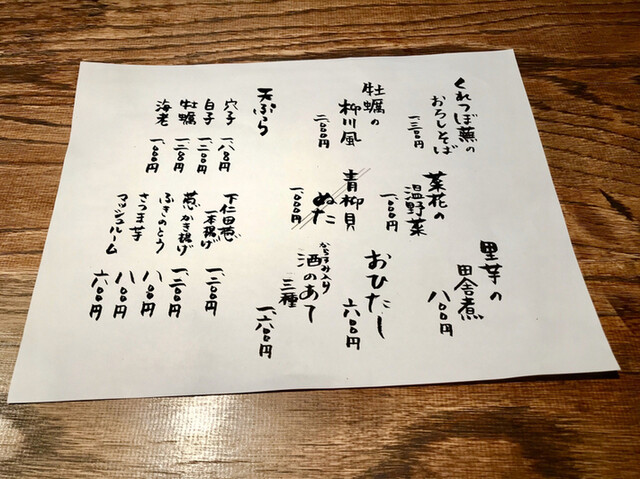 くれつぼ蕪の
おろしそば
一、三〇〇円
菜花の
温野菜
一、〇〇〇円
里芋の
田舎煮
八〇〇円
牡蠣の
柳川風
二、〇〇〇円
青柳貝
ぬた
一、〇〇〇円
おひたし
六〇〇円
からすみ入り
酒のあて
三種
一、六〇〇円
天ぷら
穴子
一、八〇〇円
白子
一、二〇〇円
牡蠣
海老
一、〇〇〇円
下仁田葱
一本揚げ
一、二〇〇円
葱かき揚げ
一、二〇〇円
ふきのとう
八〇〇円
さつま芋
八〇〇円
マッシュルーム
六〇〇円